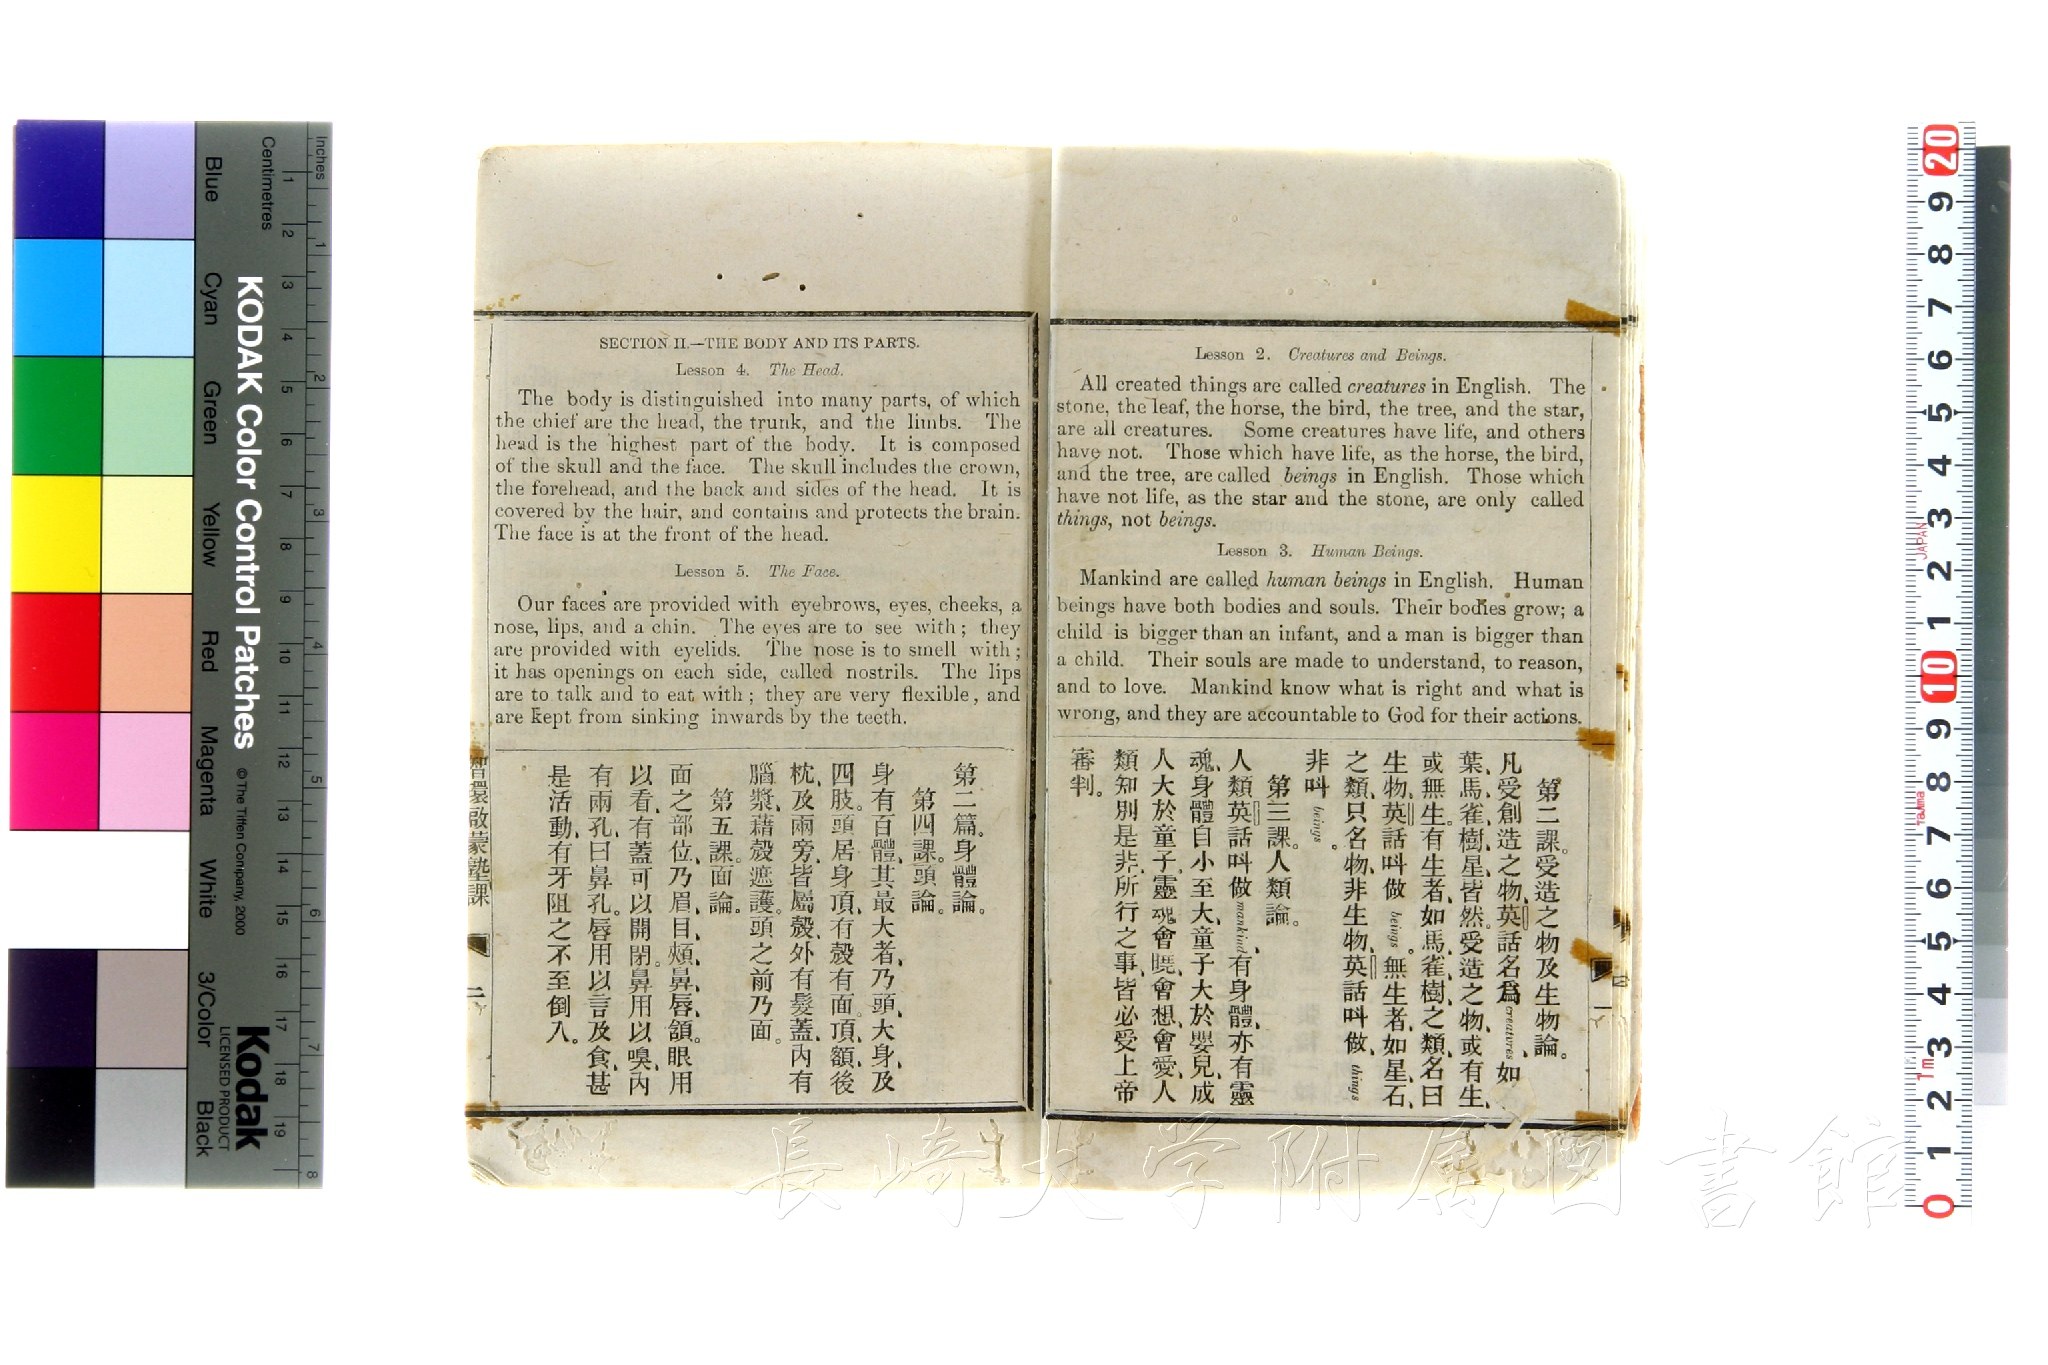 Inches
Centimetres
KODAK Color Control Patches
© The Tiffen Company, 2000
Kodak
LICENSED PRODUCT
Blue
Cyan
Green
Yellow
Red
Magenta
White
3/Color
Black
SECTION II.—THE BODY AND ITS PARTS.
Lesson 4. The Head.
The body is distinguished into many parts, of which
the chief are the head, the trunk, and the limbs. The
head is the highest part of the body. It is composed
of the skull and the face. The skull includes the crown,
the forehead, and the back and sides of the head. It is
covered by the hair, and contains and protects the brain.
The face is at the front of the head.
Lesson 5. The Face.
Our faces are provided with eyebrows, eyes, cheeks, a
nose, lips, and a chin. The eyes are to see with; they
are provided with eyelids. The nose is to smell with;
it has openings on each side, called nostrils. The lips
are to talk and to eat with; they are very flexible, and
are kept from sinking inwards by the teeth.
第二篇。身體論。
第四課。頭論。
身有百體、其最大者、乃頭、大身、及
四肢。頭居身頂、有殼有面。頂、額、後
枕、及兩旁、皆屬殼、外有髮蓋、內有
腦漿、藉殼遮護。頭之前乃面。
第五課。面論。
面之部位、乃眉、目、頰、鼻、唇、頷。眼用
以看、有蓋可以開閉。鼻用以嗅、內
有兩孔、曰鼻孔。唇用以言及食、甚
是活動、有牙阻之不至倒入。
智環啟蒙塾課
二
Lesson 2. Creatures and Beings.
All created things are called creatures in English. The
stone, the leaf, the horse, the bird, the tree, and the star,
are all creatures. Some creatures have life, and others
have not. Those which have life, as the horse, the bird,
and the tree, are called beings in English. Those which
have not life, as the star and the stone, are only called
things, not beings.
Lesson 3. Human Beings.
Mankind are called human beings in English. Human
beings have both bodies and souls. Their bodies grow; a
child is bigger than an infant, and a man is bigger than
a child. Their souls are made to understand, to reason,
and to love. Mankind know what is right and what is
wrong, and they are accountable to God for their actions.
第二課。受造之物及生物論。
凡受創造之物、英話名爲 creatures、如
葉、馬、雀、樹、星、皆然。受造之物、或有生、
或無生。有生者、如馬、雀、樹之類、名曰
生物、英話叫做 beings。無生者、如星、石、
之類、只名物、非生物、英話叫做、things
非叫 beings。
第三課。人類論。
人類英話叫做 mankind、有身體、亦有靈
魂、身體自小至大、童子大於嬰兒、成
人大於童子、靈魂會曉、會想、會愛、人
類知別是非、所行之事、皆必受上帝
審判。
長崎大学附属図書館
JAPAN
TAJIMA
1m